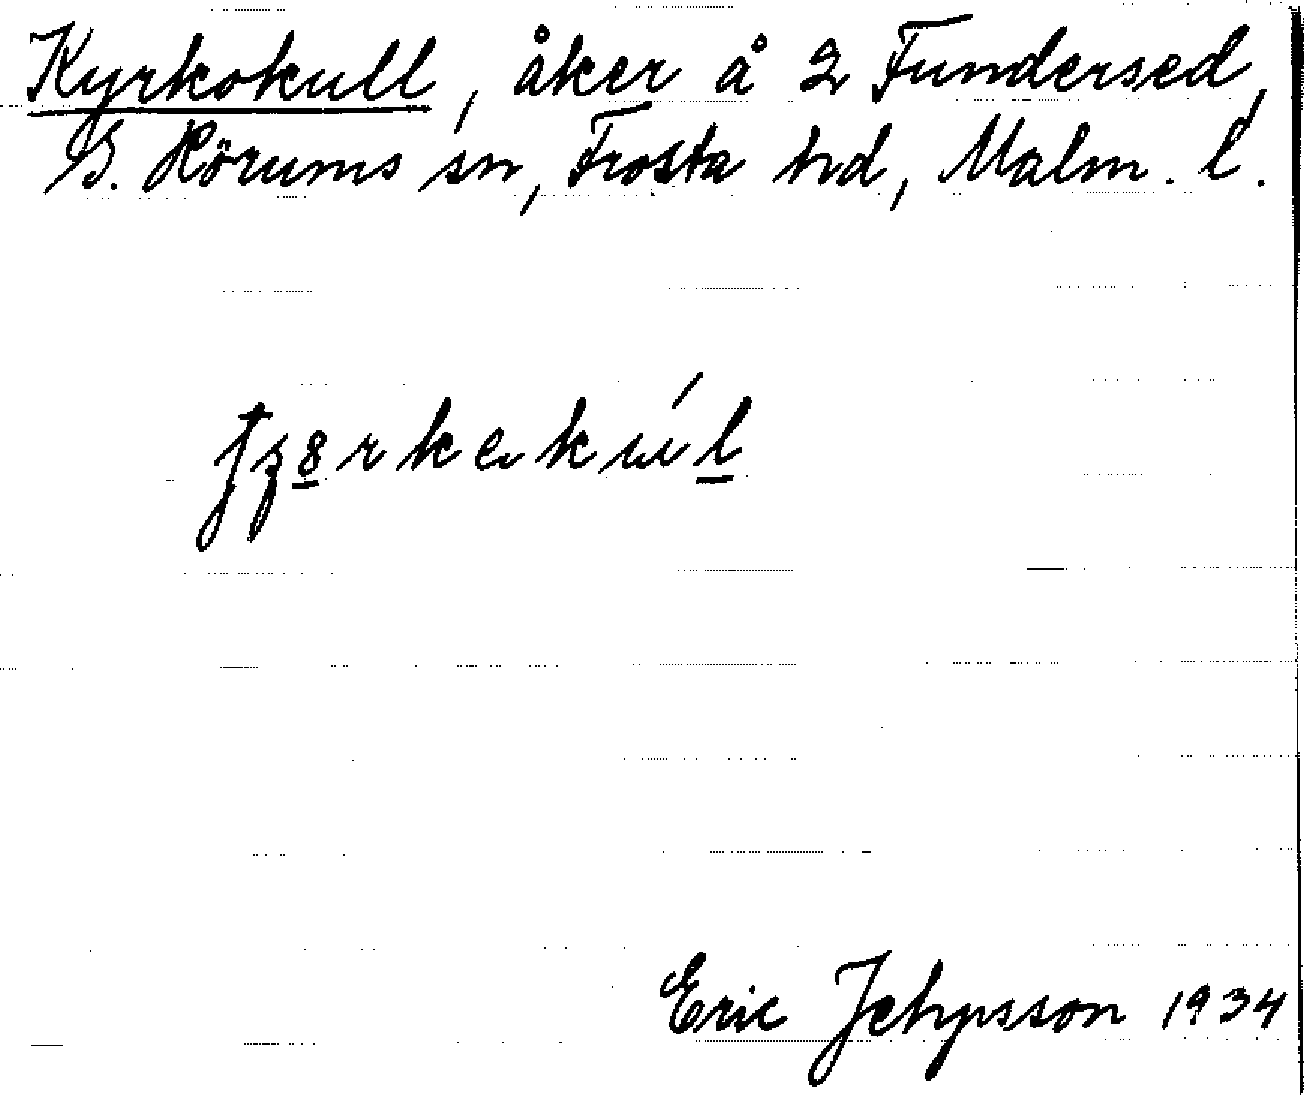 Kyrkokull, åker å 2 Fundersed,
S. Hörums sn, Frosta hd, Malm. l.
Eric Jehpsson 1934